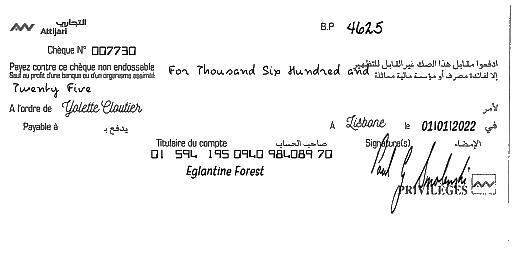 التجاري
Attijari
B.P 4625
Chèque N° 007730
Payez contre ce chèque non endossable
Sauf au profit d'une banque ou d'un organisme assimilé
For Thousand Six Hundred and
ادفعوا مقابل هذا الصك غير القابل للتظهير
إلا لفائدة مصرف أو مؤسسة مالية مماثلة
Twenty Five
A l'ordre de Yolette Cloutier لأمر
Payable à يدفع بـ
A Lisbone le 01/01/2022 في
Titulaire du compte صاحب الحساب
Signature(s) الإمضاء
01 594 195 0940 984089 70
Eglantine Forest
PRIVILÈGES